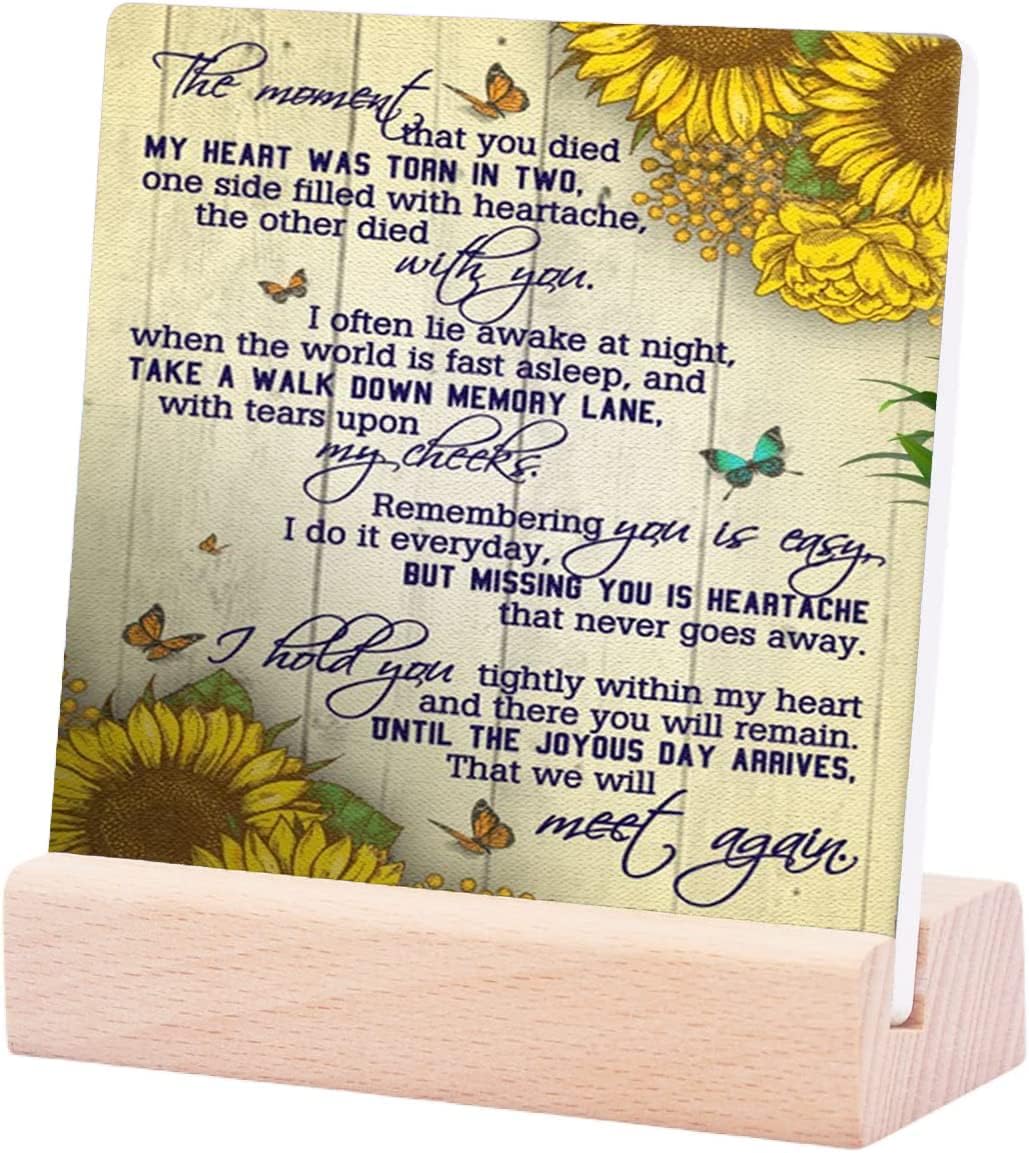 The moment
that you died
MY HEART WAS TORN IN TWO,
one side filled with heartache,
the other died
with you.
I often lie awake at night,
when the world is fast asleep, and
TAKE A WALK DOWN MEMORY LANE,
with tears upon
my cheeks.
Remembering you is easy,
I do it everyday,
BUT MISSING YOU IS HEARTACHE
that never goes away.
I hold you tightly within my heart
and there you will remain.
UNTIL THE JOYOUS DAY ARRIVES,
That we will
meet again.